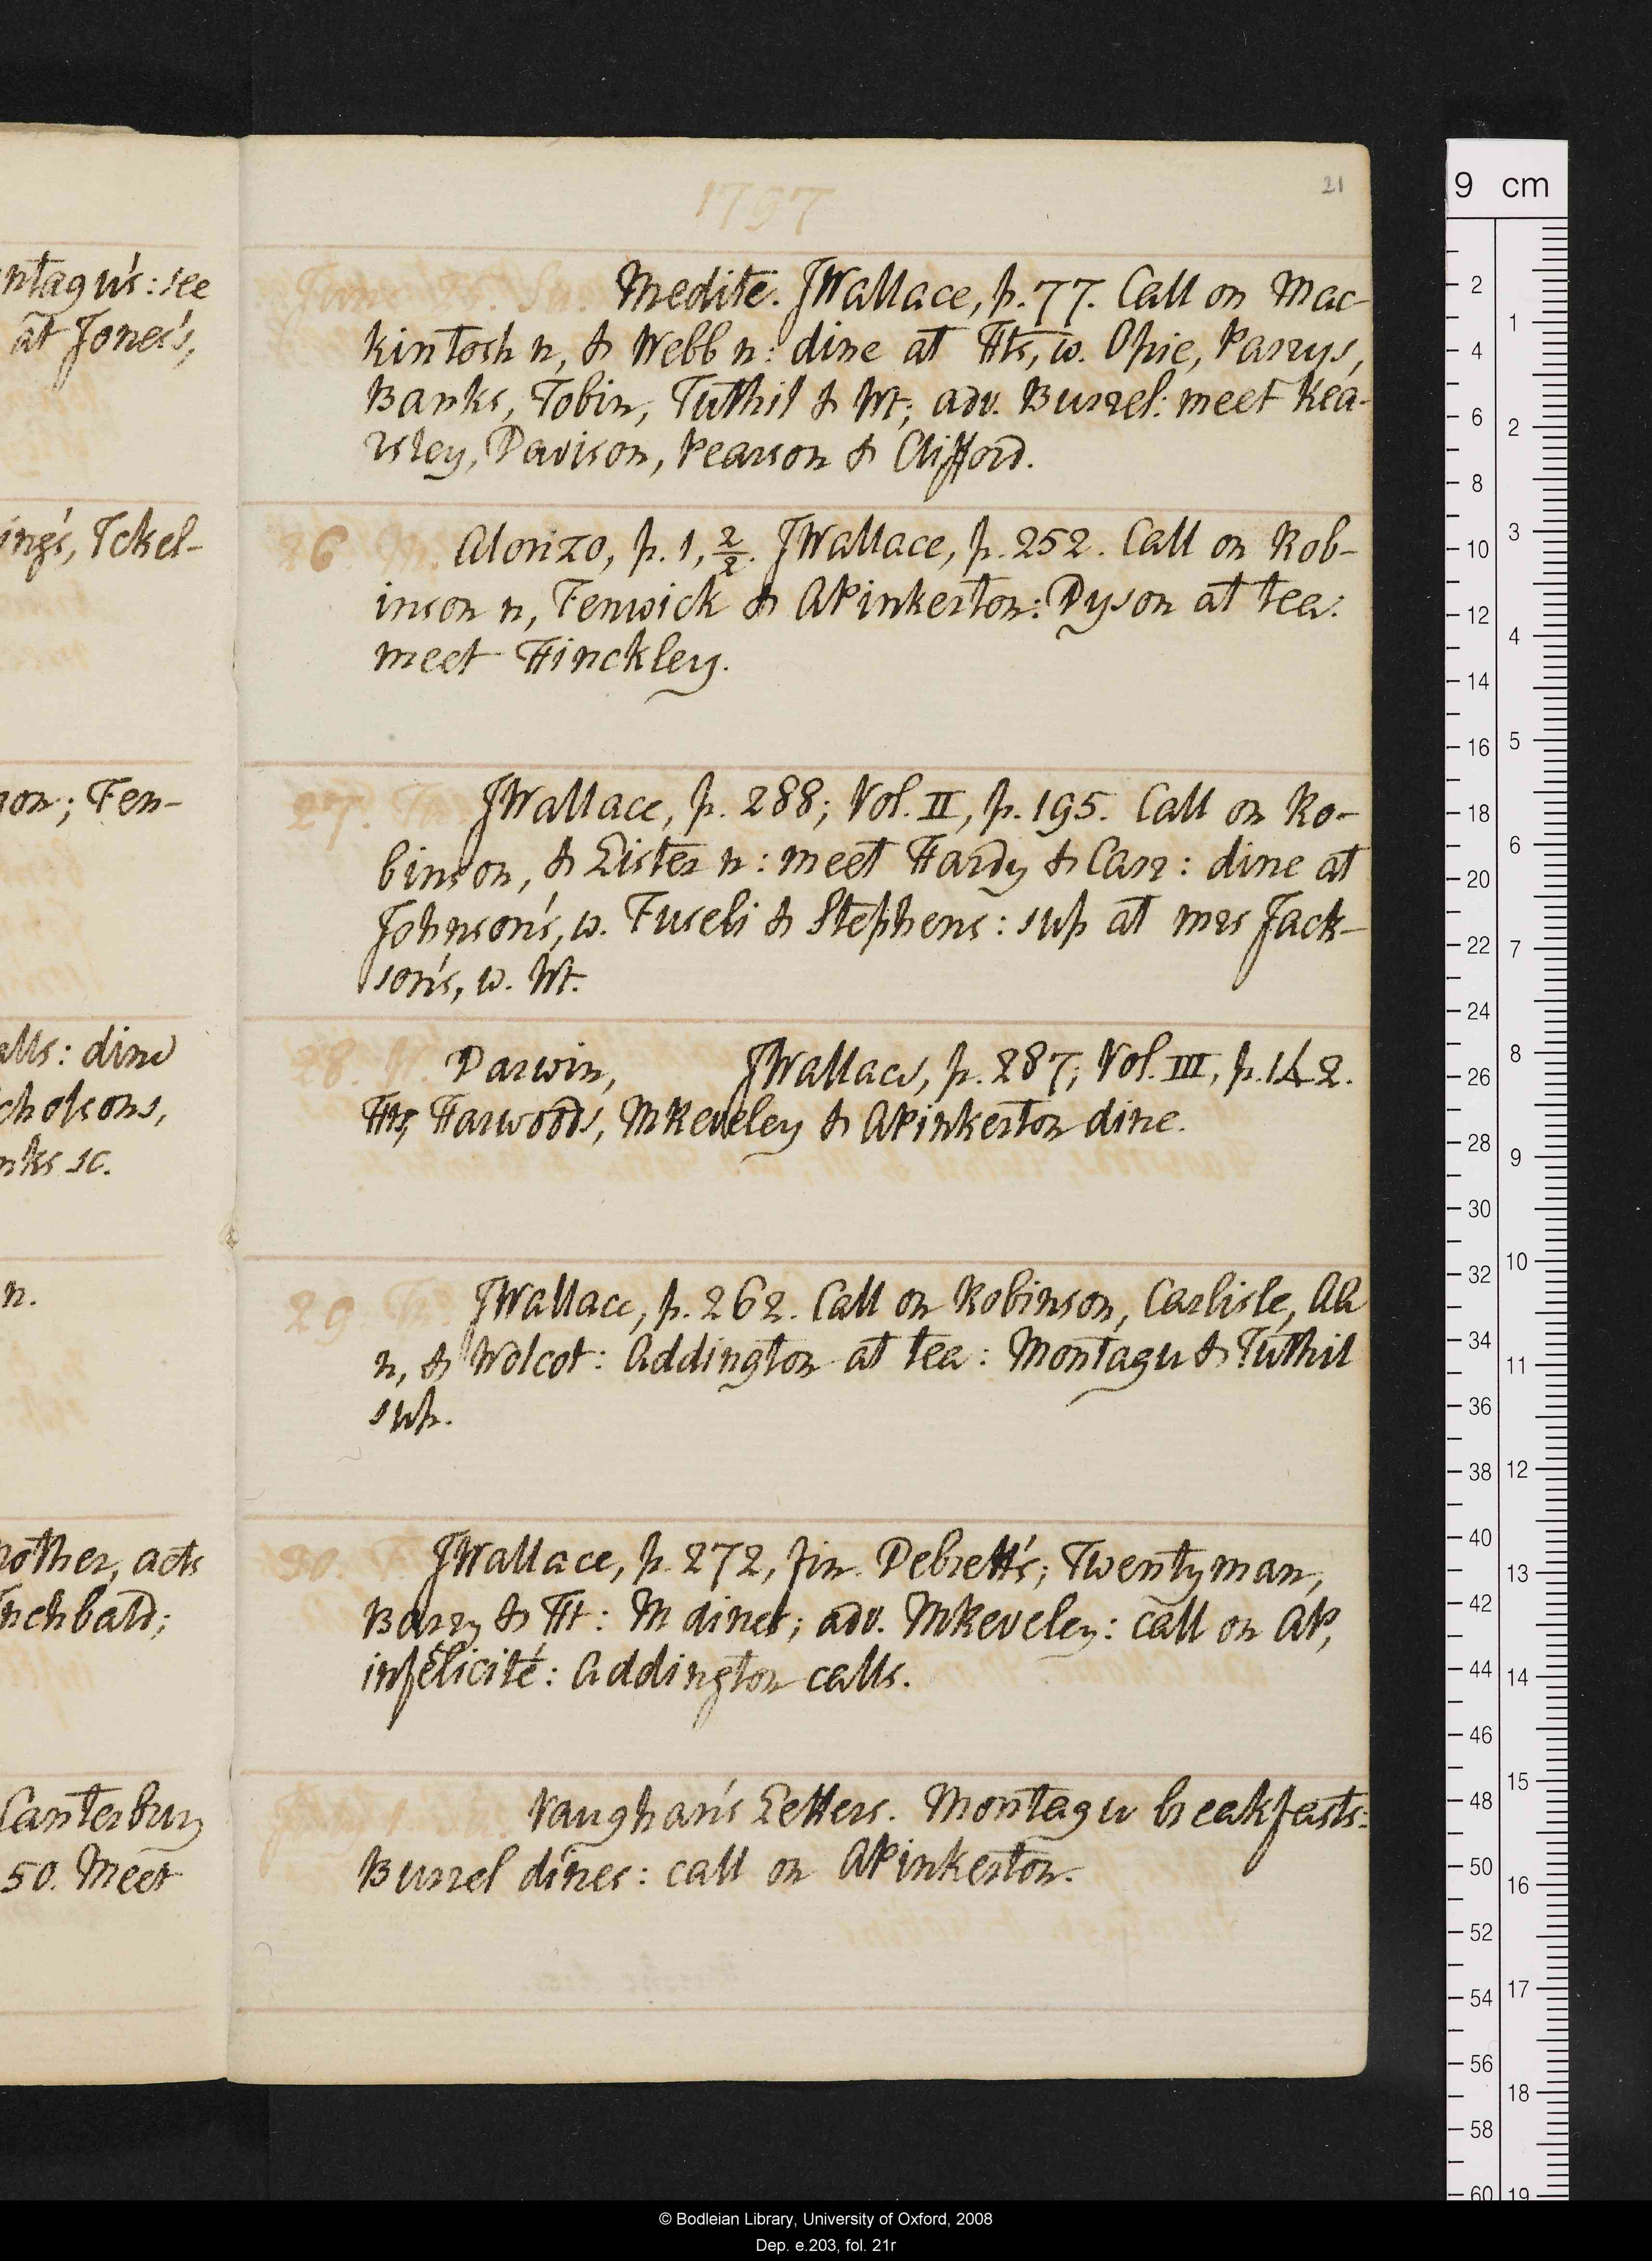 ntagu's: see
at Jones's,
ing's, Ickel-
on; Fen-
alls: dine
cholsons,
nks sc.
n.
nother, acts
nchbald;
Canterbury
50. Meet
1797
21
June 25. Su. Medite. JWallace, p. 77. Call on Mac-
kintosh n, & Webb n: dine at Hts, w. Opie, Parrys,
Banks, Tobin, Tuthil & Wt; adv. Burrel: meet Kea-
rsley, Davison, Pearson & Clifford.
26. M. Alonzo, p. 1, 2/2. JWallace, p. 252. Call on Rob-
inson n, Fenwick & APinkerton: Dyson at tea:
meet Hinckley.
27. Tu. JWallace, p. 288; Vol. II, p. 195. Call on Ro-
binson, & Lister n: meet Hardy & Carr: dine at
Johnson's, w. Fuseli & Stephens: sup at mrs Jack-
son's, w. Wt.
28. W. Darwin, JWallace, p. 287; Vol. III, p. 142.
Hts, Harwoods, MReveley & APinkerton dine.
29. Th. JWallace, p. 262. Call on Robinson, Carlisle, AA
n, & Wolcot: Addington at tea: Montagu & Tuthil
sup.
30. F. JWallace, p. 272, fin. Debrett's; Twentyman,
Barry & Ht: M dines; adv. MReveley: call on AP,
infélicité: Addington calls.
July 1. Sa. Vaughan's Letters. Montagu breakfasts:
Burrel dines: call on APinkerton.
9 cm
2
4
6
8
10
12
14
16
18
20
22
24
26
28
30
32
34
36
38
40
42
44
46
48
50
52
54
56
58
60
1
2
3
4
5
6
7
8
9
10
11
12
13
14
15
16
17
18
19
© Bodleian Library, University of Oxford, 2008
Dep. e.203, fol. 21r